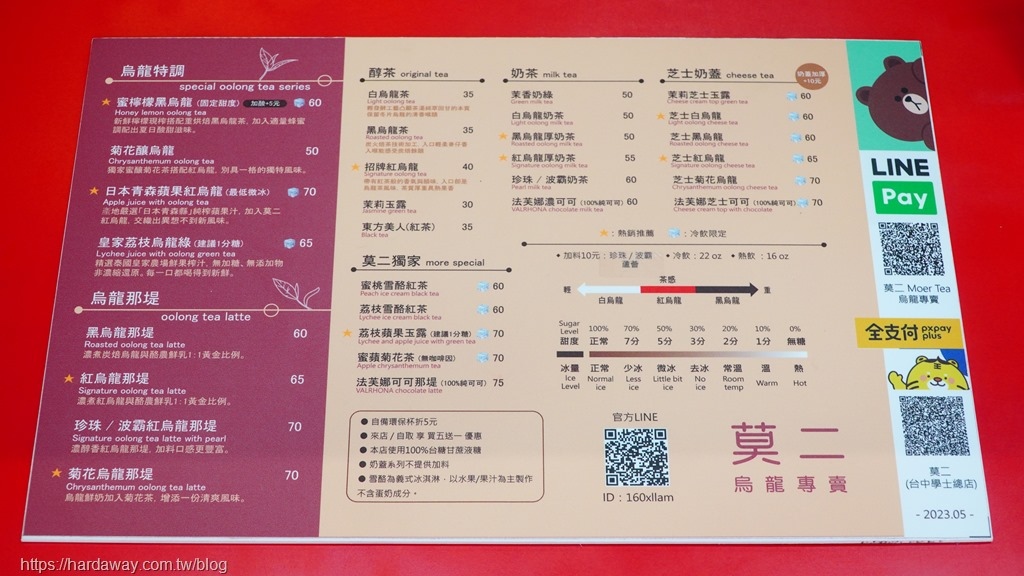 烏龍特調
special oolong tea series
★ 蜜檸檬黑烏龍 (固定甜度) 加除+5元 60
Honey lemon oolong tea
新鮮檸檬現榨搭配重烘焙黑烏龍茶, 加入適量蜂蜜
調配出夏日酸甜滋味。
菊花釀烏龍 50
Chrysanthemum oolong tea
獨家蜜釀菊花茶搭配紅烏龍, 別具一格的獨特風味。
★ 日本青森蘋果紅烏龍 (最低微冰) 70
Apple juice with oolong tea
產地嚴選「日本青森縣」純榨蘋果汁, 加入莫二
紅烏龍, 交織出異想不到新風味。
皇家荔枝烏龍綠 (建議1分糖) 65
Lychee juice with oolong green tea
精選泰國皇家農場鮮果榨汁, 無加糖、無添加物
非濃縮還原。每一口都喝得到新鮮。
烏龍那堤
oolong tea latte
黑烏龍那堤 60
Roasted oolong tea latte
濃煮炭焙烏龍與酪農鮮乳1:1黃金比例。
★ 紅烏龍那堤 65
Signature oolong tea latte
濃煮紅烏龍與酪農鮮乳1:1黃金比例。
珍珠 / 波霸紅烏龍那堤 70
Signature oolong tea latte with pearl
濃醇香紅烏龍那堤, 加料口感更豐富。
★ 菊花烏龍那堤 70
Chrysanthemum oolong tea latte
烏龍鮮奶加入菊花茶, 增添一份清爽風味。
醇茶 original tea
白烏龍茶 35
Light oolong tea
黑烏龍茶 35
Roasted oolong tea
★ 招牌紅烏龍 40
Signature oolong tea
茉莉玉露 30
Jasmine green tea
東方美人(紅茶) 35
Black tea
莫二獨家 more special
蜜桃雪酪紅茶 60
Peach ice cream black tea
荔枝雪酪紅茶 60
Lychee ice cream black tea
★ 荔枝蘋果玉露 (建議1分糖) 70
Lychee and apple juice with green tea
蜜蘋菊花茶 (無咖啡因) 70
Apple chrysanthemum tea
法芙娜可可那堤 (100%純可可) 75
VALRHONA chocolate latte
● 自備環保杯折5元
● 來店 / 自取 享 買五送一 優惠
● 本店使用100%台糖甘蔗液糖
● 奶蓋系列不提供加料
● 雪酪為義式冰淇淋, 以水果/果汁為主製作
不含蛋奶成分。
奶茶 milk tea
茉香奶綠 50
Green milk tea
白烏龍奶茶 50
Light oolong milk tea
★ 黑烏龍厚奶茶 50
Roasted oolong milk tea
★ 紅烏龍厚奶茶 55
Signature oolong milk tea
珍珠 / 波霸奶茶 60
Pearl milk tea
法芙娜濃可可 (100%純可可) 60
VALRHONA chocolate milk tea
芝士奶蓋 cheese tea
奶蓋加厚
+10元
茉莉芝士玉露 60
Cheese cream top green tea
★ 芝士白烏龍 60
Light oolong cheese tea
芝士黑烏龍 60
Roasted oolong cheese tea
★ 芝士紅烏龍 65
Signature oolong cheese tea
芝士菊花烏龍 70
Chrysanthemum oolong cheese tea
法芙娜芝士可可 (100%純可可) 70
Cheese cream top with chocolate
★:熱銷推薦 :冷飲限定
• 加料10元:珍珠 / 波霸 • 冷飲:22 oz • 熱飲:16 oz
蘆薈
茶感
輕 重
白烏龍 紅烏龍 黑烏龍
Sugar Level 100% 70% 50% 30% 20% 10% 0%
甜度 正常 7分 5分 3分 2分 1分 無糖
冰量 正常 少冰 微冰 去冰 常溫 溫 熱
Ice Level Normal ice Less ice Little bit ice No ice Room temp Warm Hot
官方LINE
ID:160xllam
莫二
烏龍專賣
LINE
Pay
莫二 Moer Tea
烏龍專賣
全支付 pxpay plus
莫二
(台中學士總店)
- 2023.05 -
https://hardaway.com.tw/blog